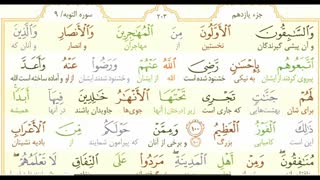 جزء یازدهم ۲۰۳ سوره التوبه/ ۹
وَالسَّٰبِقُونَ الْأَوَّلُونَ مِنَ الْمُهَٰجِرِينَ وَالْأَنصَارِ وَالَّذِينَ
و آن پیشی گیرندگان نخستین از مهاجران و انصار و آنان که
اتَّبَعُوهُم بِإِحْسَٰنٍ رَّضِيَ اللَّهُ عَنْهُمْ وَرَضُوا عَنْهُ وَأَعَدَّ
پیروی کردند ازایشان به نیکی خشنود شده است خدا از ایشان و خشنود شدند ایشان از او و آماده ساخته است الله
لَهُمْ جَنَّٰتٍ تَجْرِي تَحْتَهَا الْأَنْهَٰرُ خَٰلِدِينَ فِيهَا أَبَدًا
برای شان که جاری است زیر جوی‌ها جاویدان باشند در آنها همیشه
ذَٰلِكَ الْفَوْزُ الْعَظِيمُ ١٠٠ وَمِمَّنْ حَوْلَكُم مِّنَ الْأَعْرَابِ
این است کامیابی بزرگ و برخی از که پیرامون شمایند از بادیه نشینان
مُنَٰفِقُونَ ۖ وَمِنْ أَهْلِ الْمَدِينَةِ ۖ مَرَدُوا عَلَى النِّفَاقِ لَا تَعْلَمُهُمْ ۖ